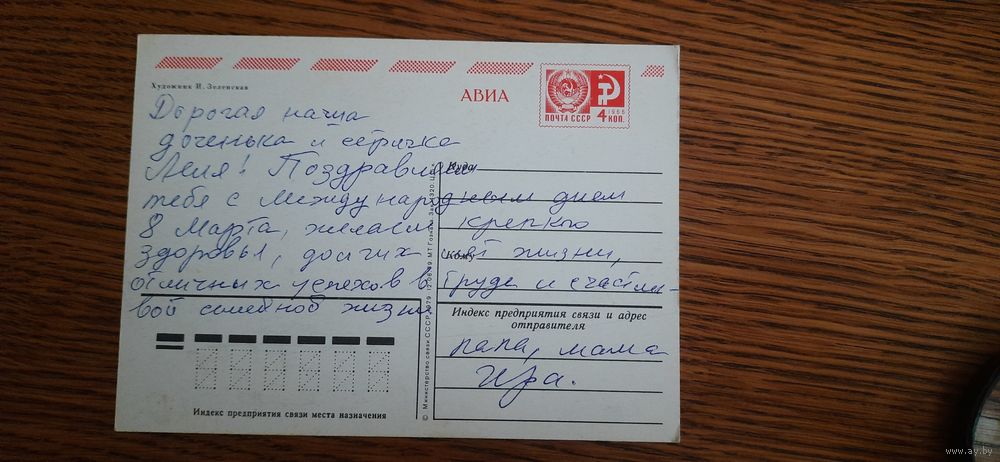 Художник И. Зеленская
АВИА
ПОЧТА СССР
1966
4 КОП.
Дорогая наша
доченька и сестричка
Леля! Поздравляем
тебя с Международным днем
8 Марта, желаем крепкого
здоровья, долгих лет жизни,
отличных успехов в труде и счастли-
вой семейной жизни
папа, мама
Ира.
Куда
Кому
Индекс предприятия связи и адрес
отправителя
Индекс предприятия связи места назначения
© Министерство связи СССР 1979
МТ Гознака
www.ay.by